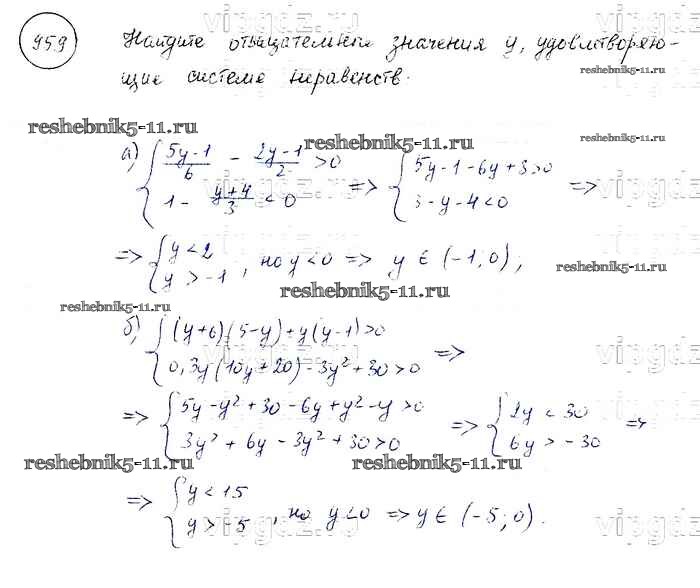 959 Найдите отрицательные значения y, удовлетворяю-
щие системе неравенств.
reshebnik5-11.ru
reshebnik5-11.ru
reshebnik5-11.ru
а) { (5y-1)/6 - (2y-1)/2 > 0 => { 5y-1-6y+3>0 =>
1 - (y+4)/3 < 0 3-y-4<0
=> { y<2
y>-1 , но y<0 => y ∈ (-1; 0);
reshebnik5-11.ru
reshebnik5-11.ru
reshebnik5-11.ru
б) { (y+6)(5-y)+y(y-1)>0
0,3y(10y+20)-3y²+30>0 =>
=> { 5y-y²+30-6y+y²-y>0 => { 2y<30 =>
3y²+6y-3y²+30>0 6y>-30
reshebnik5-11.ru
reshebnik5-11.ru
reshebnik5-11.ru
=> { y<15
y>-5 , но y<0 => y ∈ (-5; 0).
vipgdz